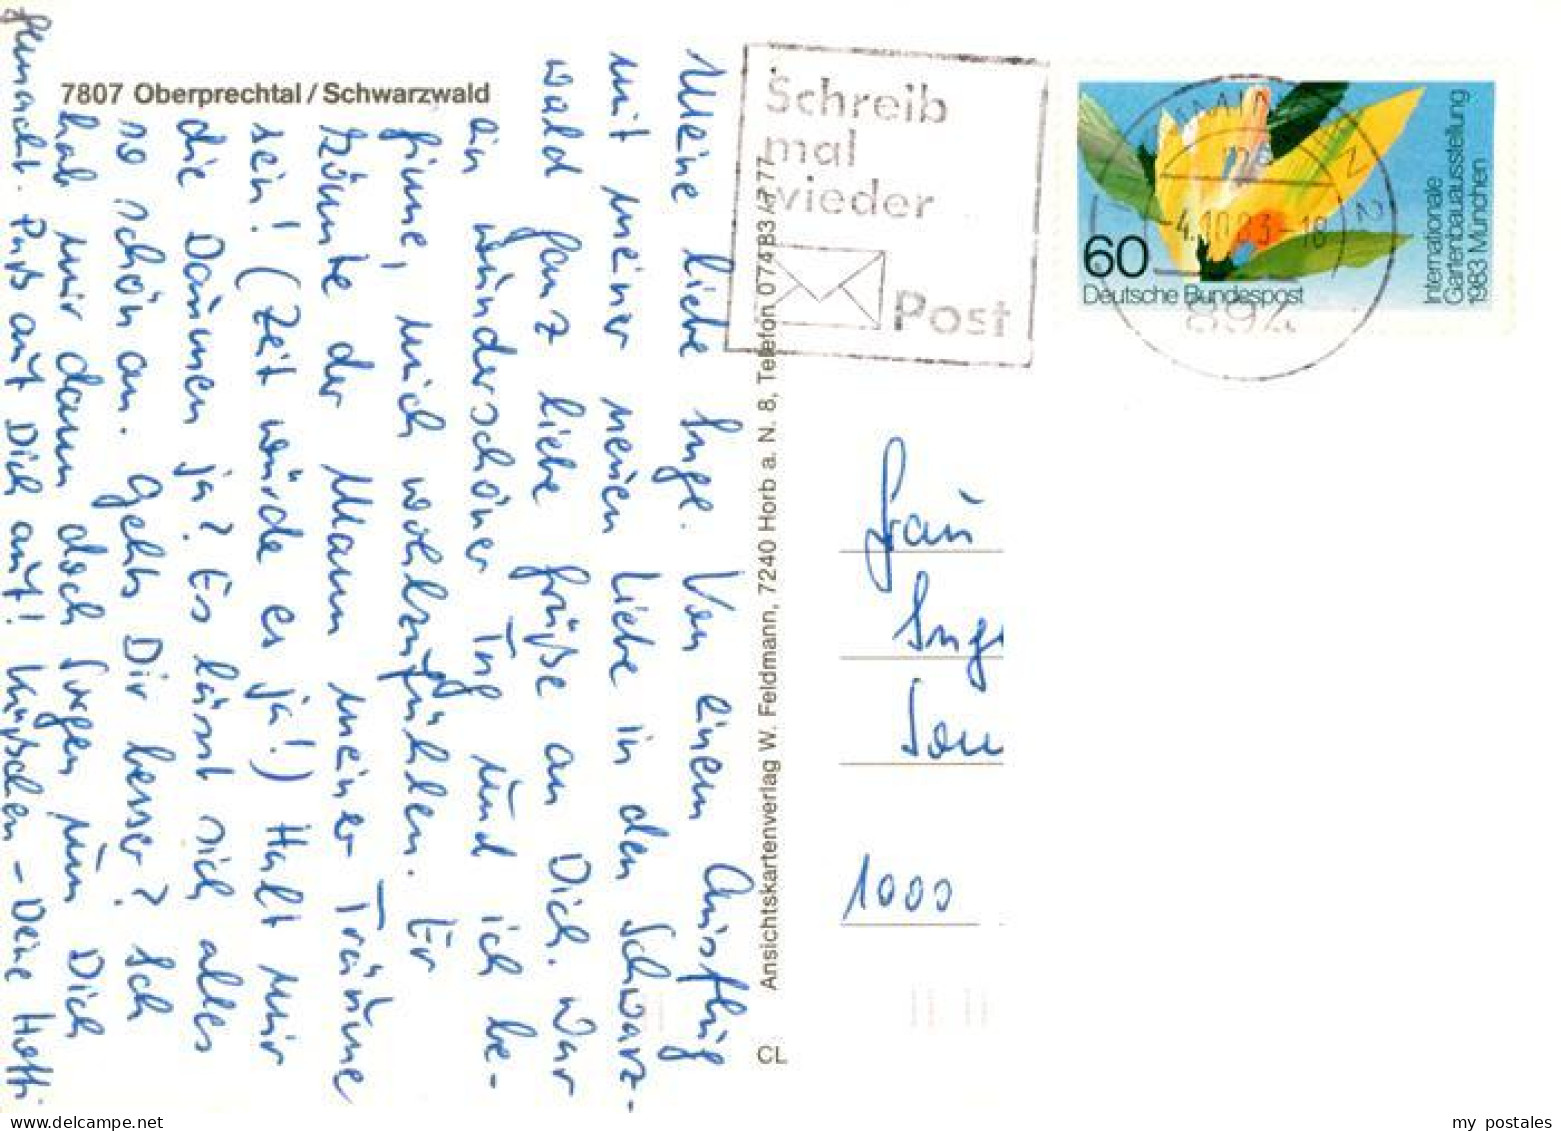 7807 Oberprechtal / Schwarzwald
Meine liebe Inge. Von einem Ausflug
mit meiner neuen Liebe in den Schwarz-
wald ganz liebe Grüße an Dich. War
ein wunderschöner Tag und ich be-
ginne, mich wohlzufühlen. Er
könnte der Mann meiner Träume
sein! (Zeit würde es ja!) Halt mir
die Daumen ja? Es lässt sich alles
so schön an. Gehts Dir besser? Ich
hab mir dann doch Sorgen um Dich
gemacht. Paß auf Dich auf! Küßchen - Deine Hotti
Ansichtskartenverlag W. Feldmann, 7240 Horb a. N. 8, Telefon 07483/777
CL
Schreib
mal
wieder
Post
-4.10.83-18
894
60
Deutsche Bundespost
Internationale
Gartenbauausstellung
1983 München
Frau
Inge
Son
1000
my postales